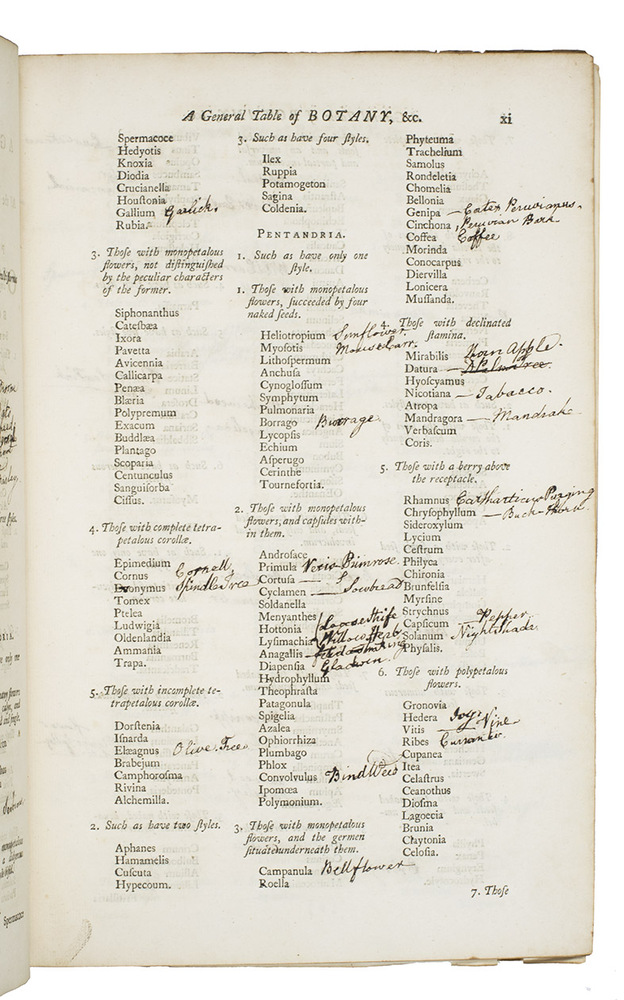 A General Table of BOTANY, &c. xi
Spermacoce
Hedyotis
Knoxia
Diodia
Crucianella
Houſtonia
Gallium Garlick
Rubia.
3. Thoſe with monopetalous
flowers, not diſtinguiſhed
by the peculiar characters
of the former.
Siphonanthus
Catesbæa
Ixora
Pavetta
Avicennia
Callicarpa
Penæa
Blæria
Polypremum
Exacum
Buddlæa
Plantago
Scoparia
Centunculus
Sanguiſorba
Ciſſus.
4. Thoſe with complete tetra-
petalous corollæ.
Epimedium
Cornus Cornell
Evonymus Spindle Tree
Tomex
Ptelea
Ludwigia
Oldenlandia
Ammania
Trapa.
5. Thoſe with incomplete te-
trapetalous corollæ.
Dorſtenia
Iſnarda
Elæagnus Olive Tree
Brabejum
Camphoroſma
Rivina
Alchemilla.
2. Such as have two ſtyles.
Aphanes
Hamamelis
Cuſcuta
Hypecoum.
3. Such as have four ſtyles.
Ilex
Ruppia
Potamogeton
Sagina
Coldenia.
PENTANDRIA.
1. Such as have only one
ſtyle.
1. Thoſe with monopetalous
flowers, ſucceeded by four
naked ſeeds.
Heliotropium Sunflower
Myoſotis Mouse Ear.
Lithoſpermum
Anchuſa
Cynogloſſum
Symphytum
Pulmonaria
Borrago Borrage
Lycopſis
Echium
Aſperugo
Cerinthe
Tournefortia.
2. Thoſe with monopetalous
flowers, and capſules with-
in them.
Androſace
Primula Veris Primrose
Cortuſa
Cyclamen — Sowbread
Soldanella
Menyanthes
Hottonia Loosestrife
Lyſimachia Willow Herb
Anagallis
Diapenſia Gladwin
Hydrophyllum
Theophraſta
Patagonula
Spigelia
Azalea
Ophiorrhiza
Plumbago
Phlox
Convolvulus Bind Weed
Ipomœa
Polymonium.
3. Thoſe with monopetalous
flowers, and the germen
ſituated underneath them.
Campanula Bellflower
Roella
Phyteuma
Trachelium
Samolus
Rondeletia
Chomelia
Bellonia
Genipa — Peruvianus
Cinchona, Peruvian Bark
Coffea Coffee
Morinda
Conocarpus
Diervilla
Lonicera
Muſſanda.
4. Thoſe with declinated
ſtamina.
Mirabilis
Datura — Thorn Apple.
Hyoſcyamus
Nicotiana — Tabacco.
Atropa
Mandragora — Mandrake
Verbaſcum
Coris.
5. Thoſe with a berry above
the receptacle.
Rhamnus Catharticus Purging
Chryſophyllum — Buck-thorn.
Sideroxylum
Lycium
Ceſtrum
Philyca
Chironia
Brunfelſia
Myrſine
Strychnus
Capſicum — Pepper
Solanum Nightshade
Phyſalis.
6. Thoſe with polypetalous
flowers.
Gronovia
Hedera Ivy
Vitis — Vine
Ribes
Cupanea
Itea
Celaſtrus
Ceanothus
Dioſma
Lagoecia
Brunia
Claytonia
Celoſia.
7. Thoſe
Spermacoce